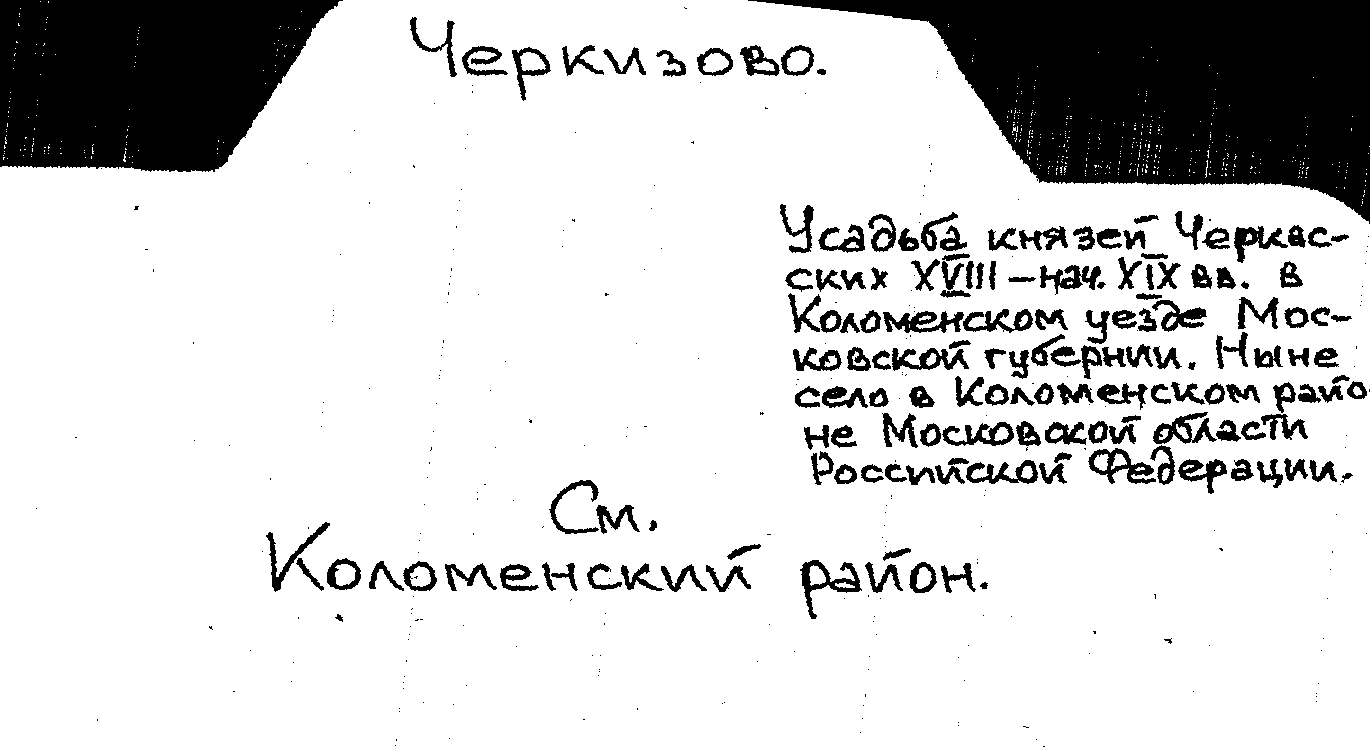 Черкизово.
Усадьба князей Черкас-
ских XVIII – нач. XIX вв. в
Коломенском уезде Мос-
ковской губернии. Ныне
село в Коломенском райо-
не Московской области
Российской Федерации.
См.
Коломенский район.